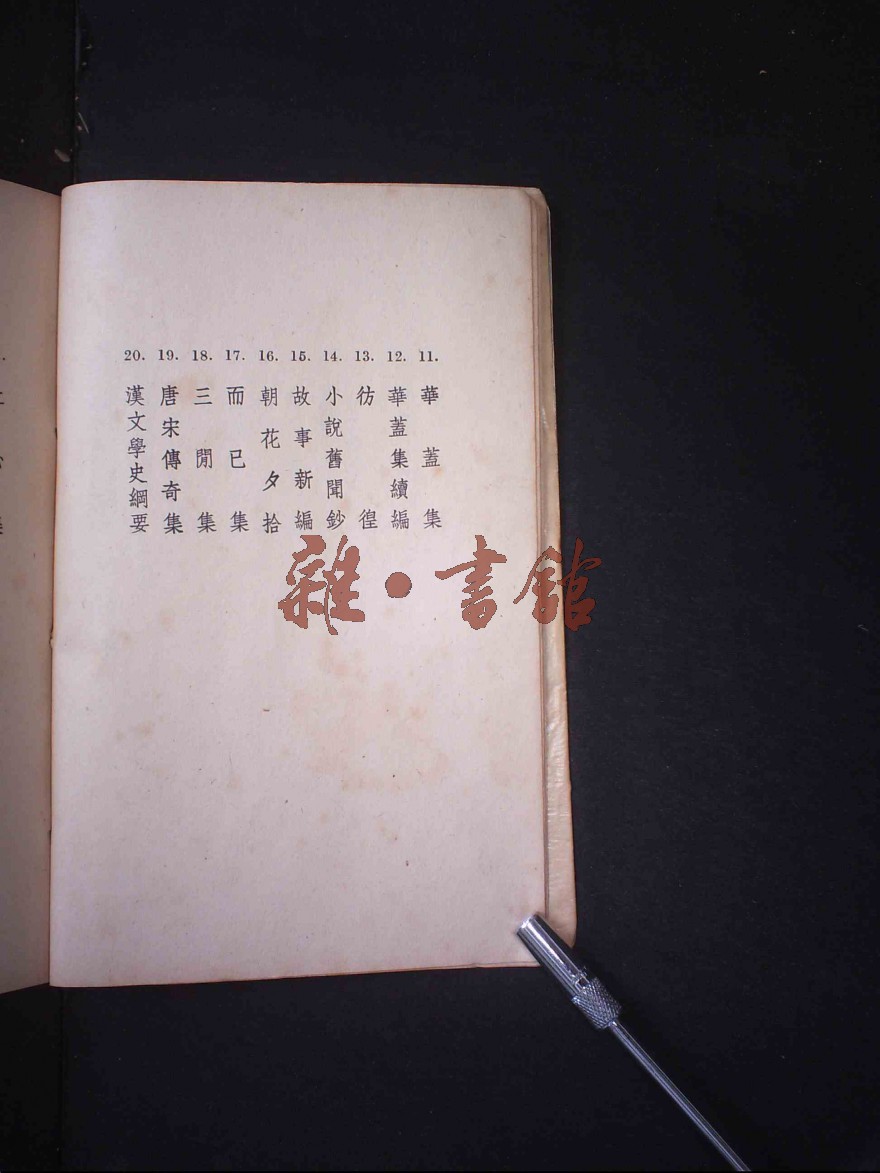 11. 華蓋集
12. 華蓋集續編
13. 彷徨
14. 小說舊聞鈔
15. 故事新編
16. 朝花夕拾
17. 而已集
18. 三閒集
19. 唐宋傳奇集
20. 漢文學史綱要
雜·書館